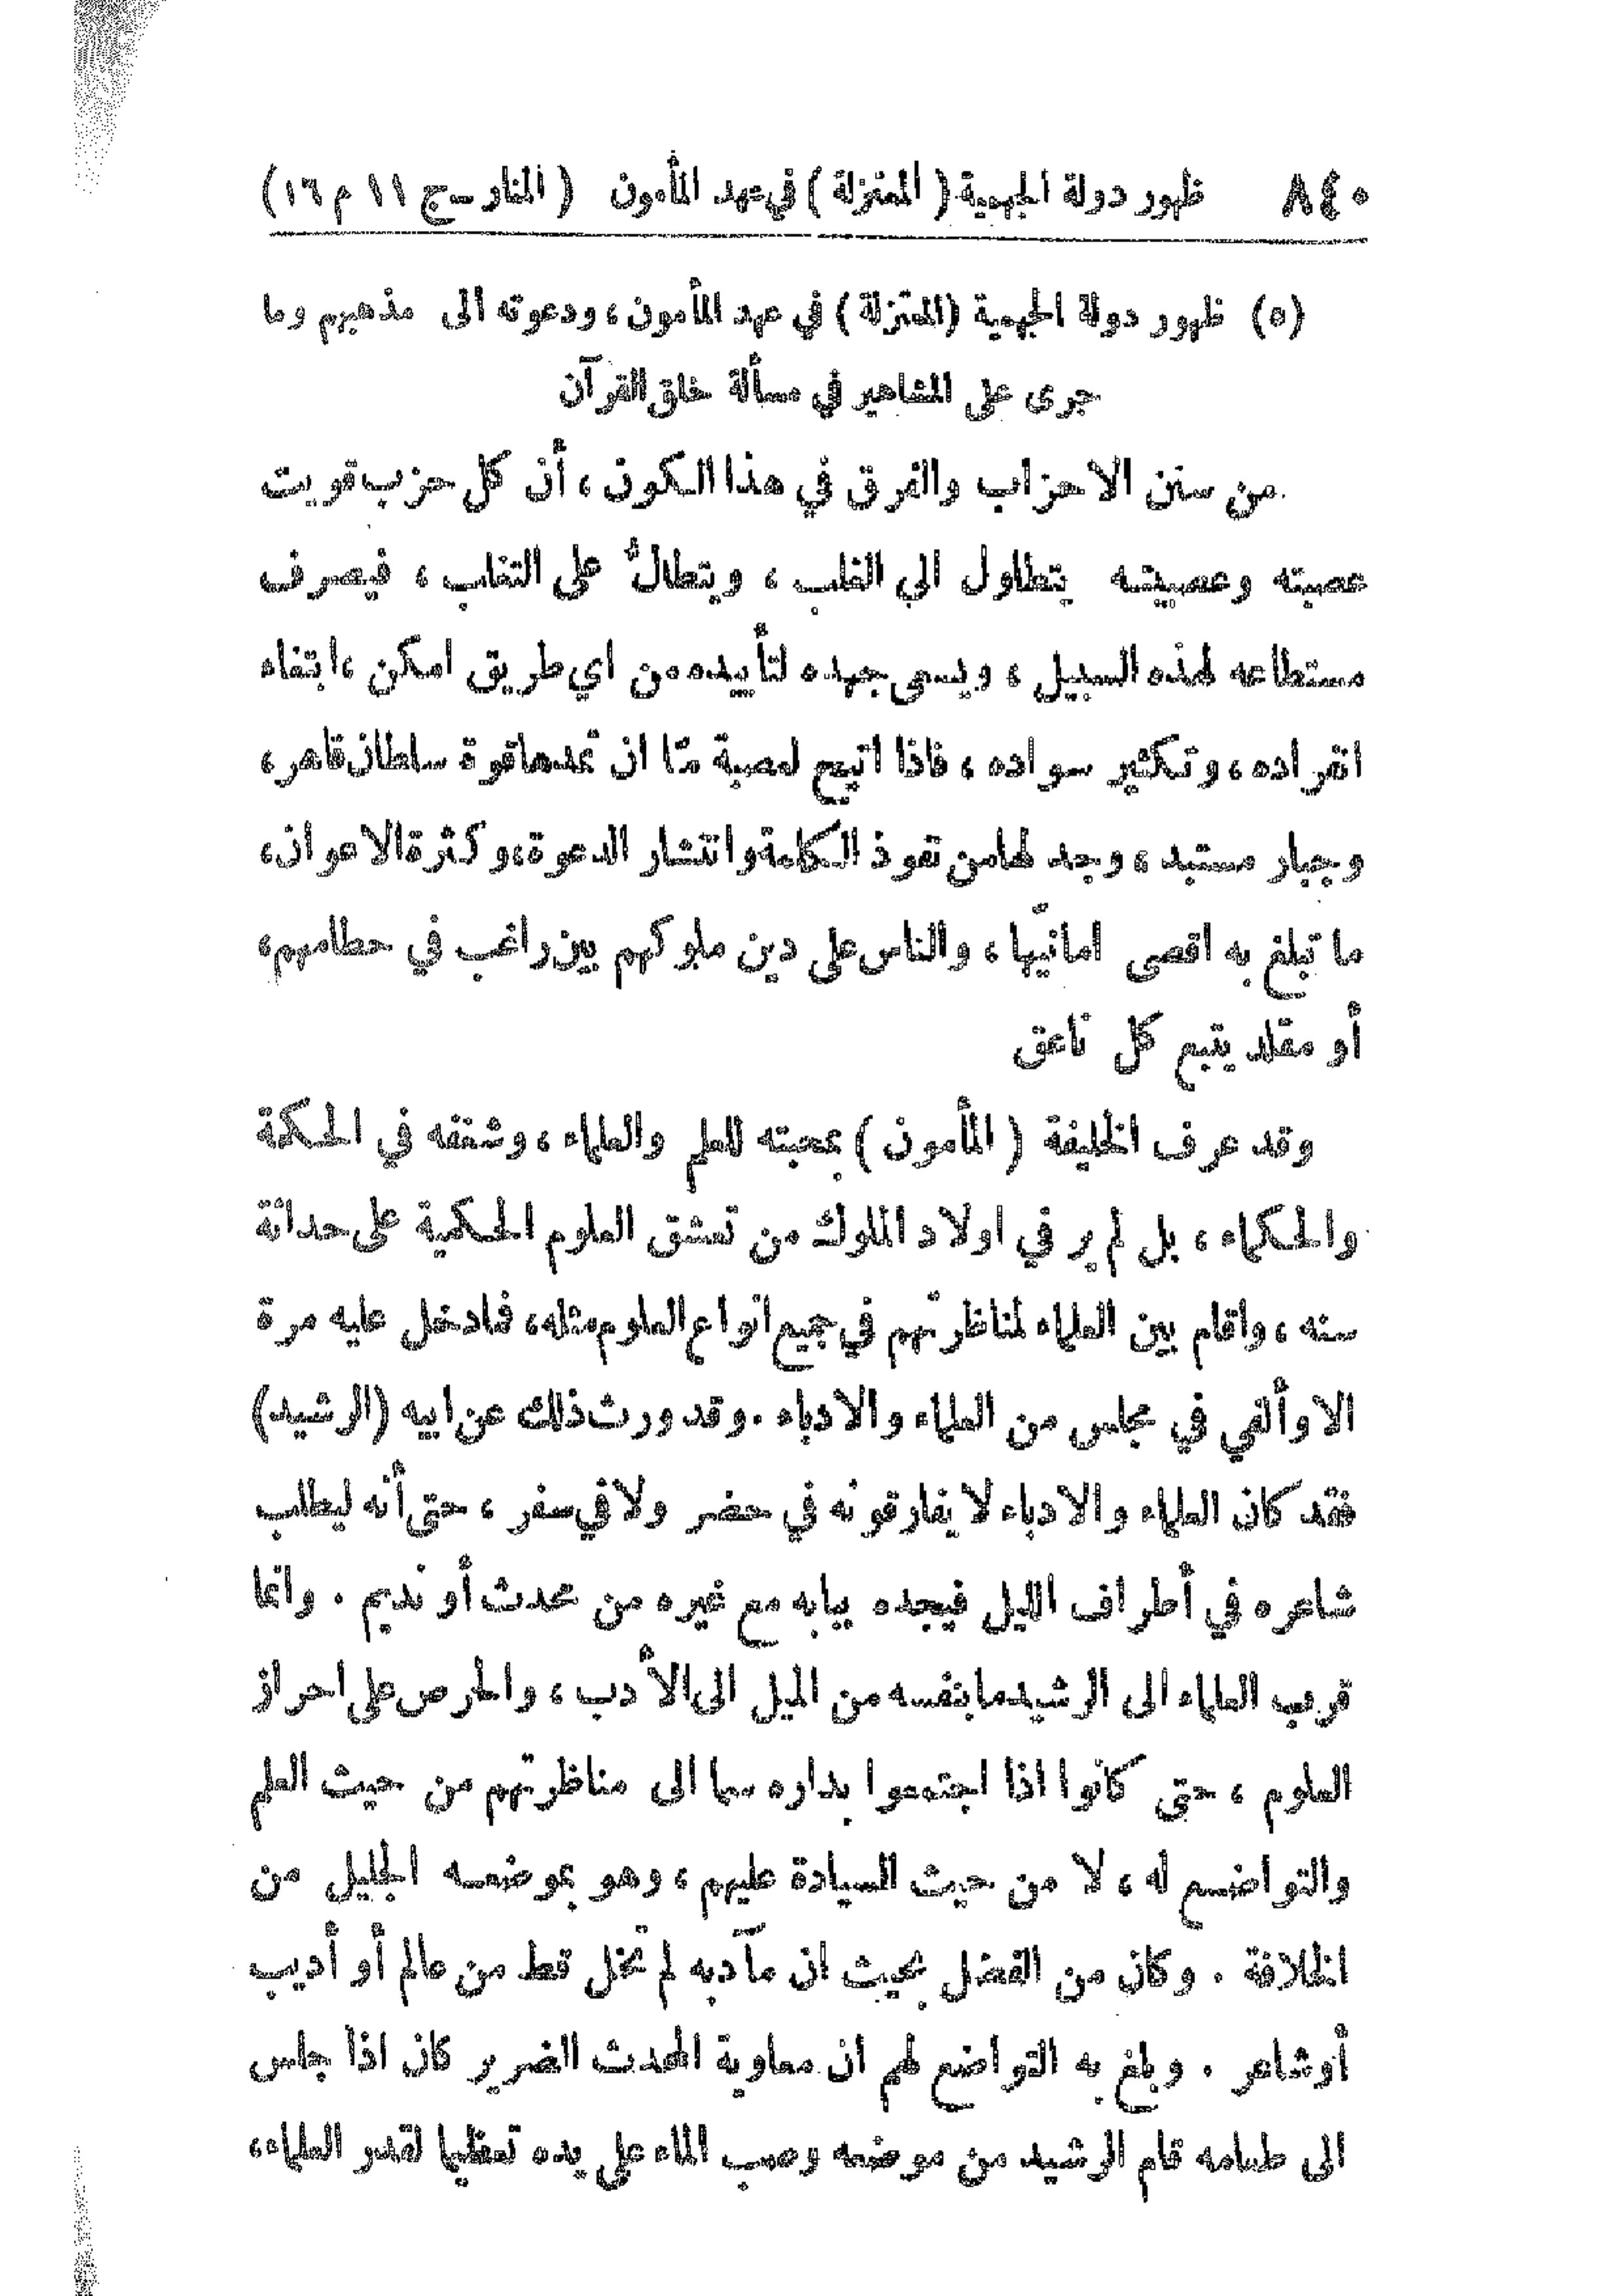 ٨٤٠ ظهور دولة الجهمية ( المعتزلة ) في عهد المأمون ( المنار ـ ج ١١ م ١٦)
(٥) ظهور دولة الجهمية (المعتزلة) في عهد المأمون، ودعوته الى مذهبهم وما
جرى على المشاهير في مسألة خلق القرآن
من سنن الاحزاب والفرق في هذا الكون، أن كل حزب قويت
عصبته وعصبيته يتطاول الى الغلب، ويتطالّ على التغلب، فيصرف
مستطاعه لهذه السبيل، ويسعى جهده لتأييده من اي طريق امكن، ابتغاء
انفراده، وتكثير سواده، فاذا اتيح لعصبة مّا ان تمدها قوة سلطان قاهر،
وجبار مستبد، وجد لها من نفوذ الكلمة وانتشار الدعوة، وكثرة الاعوان،
ما تبلغ به اقصى امانيّها، والناس على دين ملوكهم بين راغب في حطامهم،
أو مقلد يتبع كل ناعق
وقد عرف الخليفة ( المأمون ) بمحبته للعلم والعلماء، وشغفه في الحكمة
والحكماء، بل لم ير في اولاد الملوك من تعشق العلوم الحكمية على حداثة
سنه، واقام بين العلماء لمناظرتهم في جميع انواع العلوم مثله، فما دخل عليه مرة
الا وألفي في مجلس من العلماء والادباء. وقد ورث ذلك عن ابيه (الرشيد)
فقد كان العلماء والادباء لا يفارقونه في حضر ولا في سفر، حتى أنه ليطلب
شاعره في أطراف الليل فيجده ببابه مع غيره من محدث أو نديم. وانما
قرب العلماء الى الرشيد ما بنفسه من الميل الى الأدب، والحرص على احراز
العلوم، حتى كانوا اذا اجتمعوا بداره سما الى مناظرتهم من حيث العلم
والتواضع له، لا من حيث السيادة عليهم، وهو بموضعه الجليل من
الخلافة. وكان من الفضل بحيث ان مآدبه لم تخل قط من عالم أو أديب
أو شاعر. وبلغ به التواضع لهم ان معاوية المحدث الضرير كان اذا جلس
الى طعامه قام الرشيد من موضعه وصب الماء على يده تعظيما لقدر العلماء،